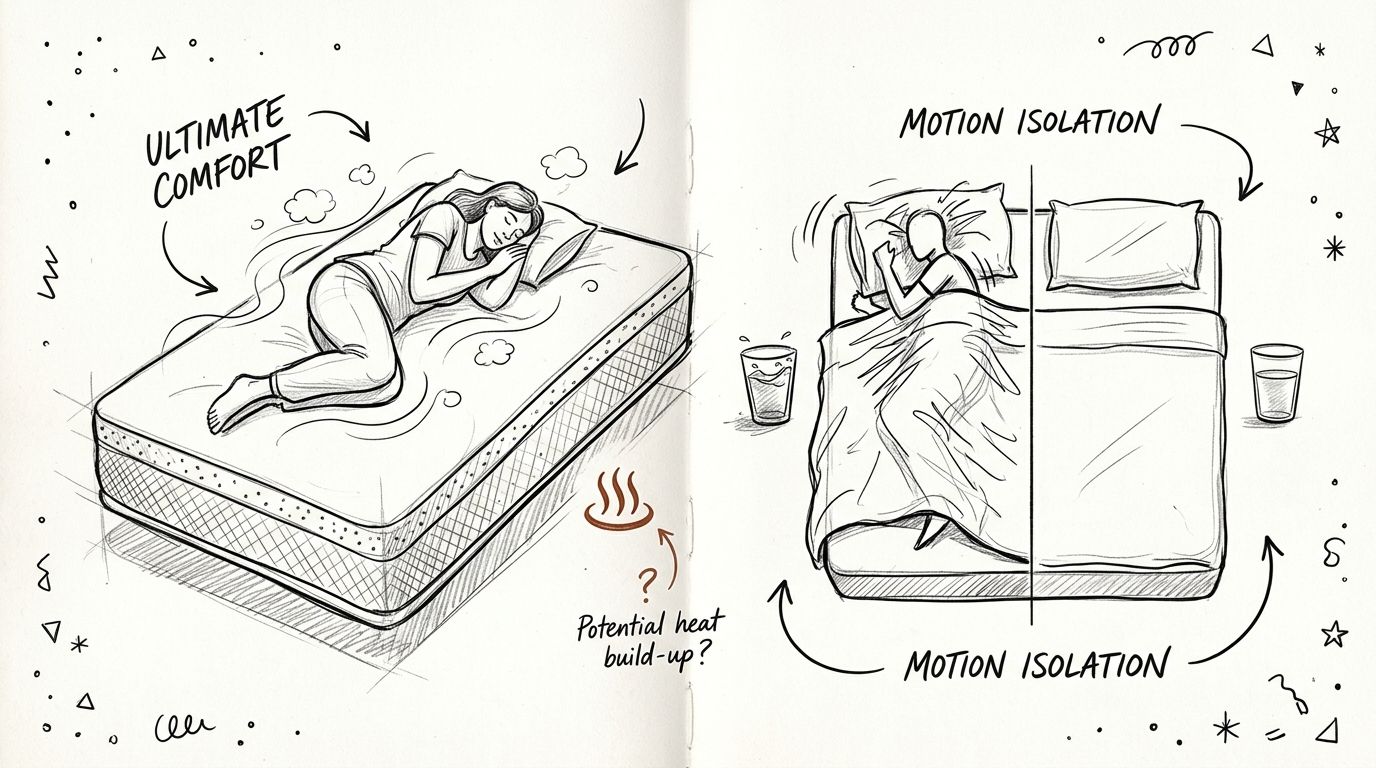 ULTIMATE
COMFORT
?
Potential heat
build-up?
MOTION ISOLATION
MOTION ISOLATION